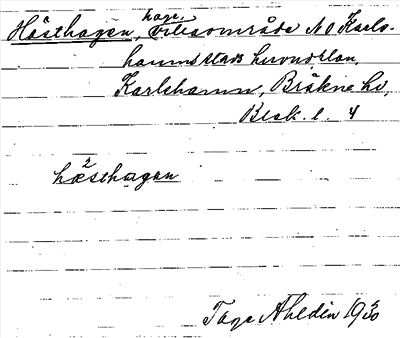 Hästhagen, hage. Viloområde N O Karls-
hamns stads huvud
Karlshamn, Bräkne hd,
Blek. l. 4
hæ²sthagen
Tage Ahldén 1930